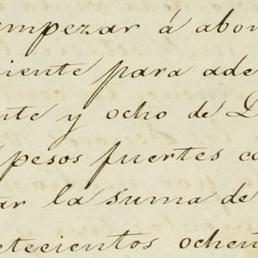 empezar á abon
iente para ade
nte y ocho de D
pesos fuertes co
ar la suma de
etecientos ochen